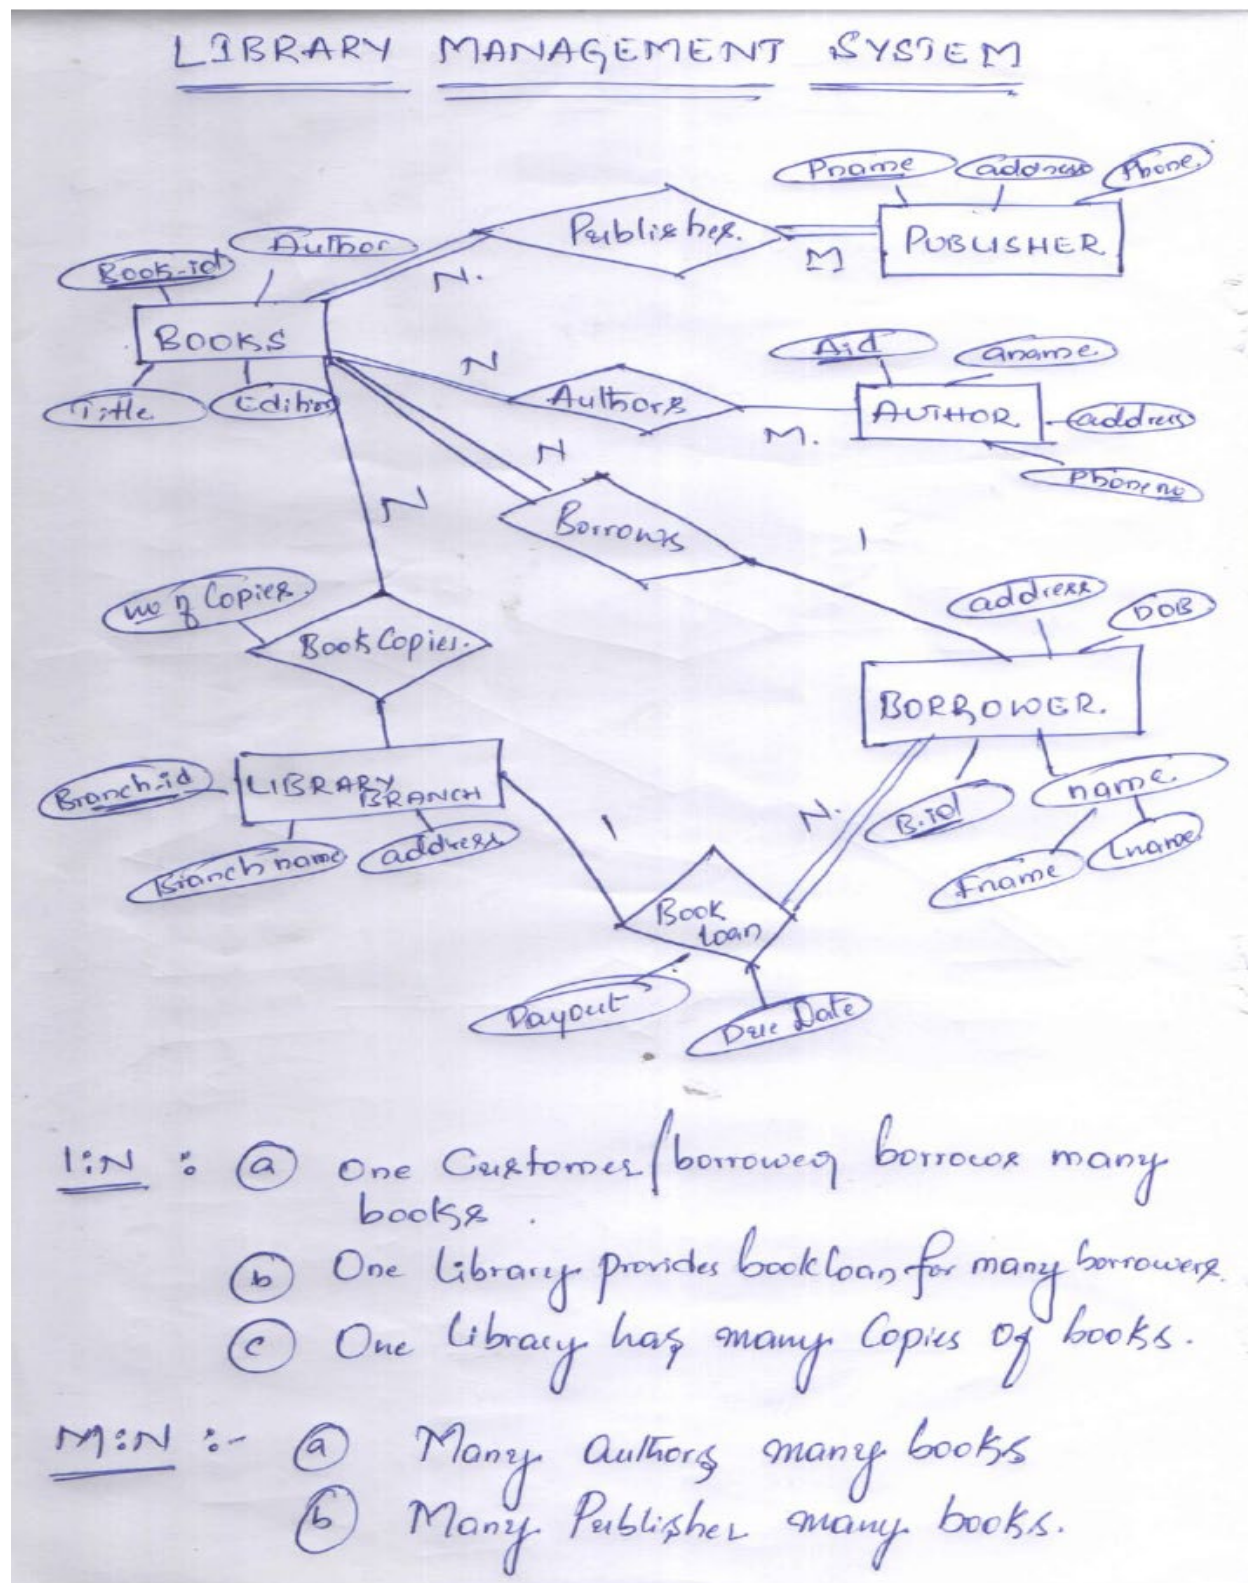 LIBRARY MANAGEMENT SYSTEM
Pname address Phone.
Publisher.
PUBLISHER
N. M
Book-id Author
BOOKS
Title Edition
Aid aname
N Authors M. AUTHOR address
Phone no
N
Borrows
1
N
no of Copies.
Book Copies.
address DOB
BORROWER.
Branch-id LIBRARY BRANCH
Branch name address
1 N.
B.id name.
Fname Lname
Book loan
Dayout
Due Date
1:N : a One Customer/borrower borrows many
books.
b One library provides book loan for many borrowers.
c One library has many Copies of books.
M:N :- a Many authors many books
b Many Publisher many books.